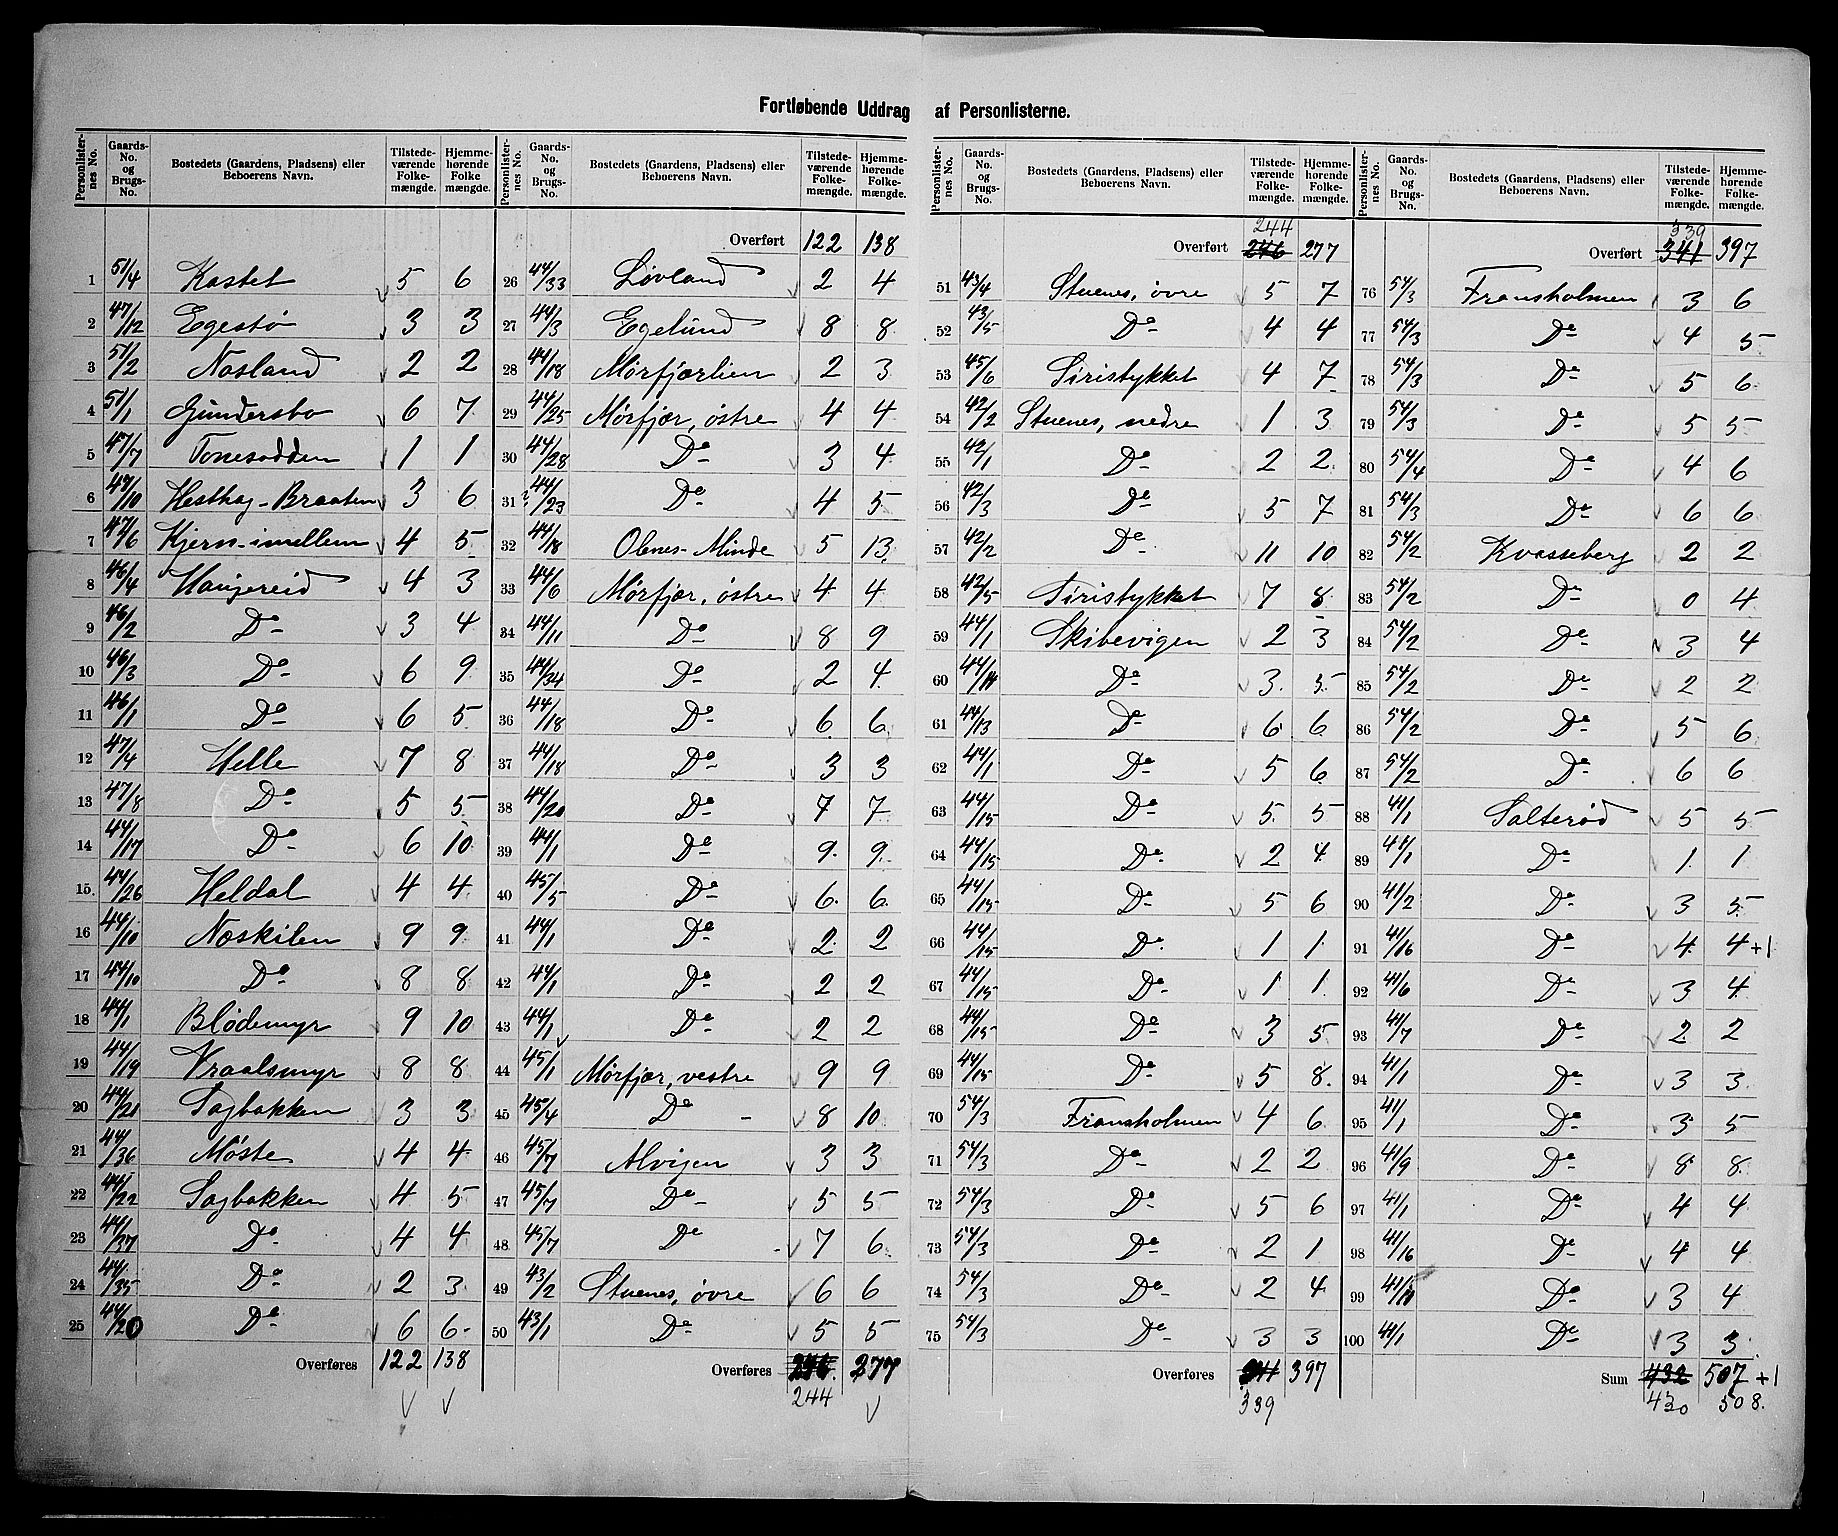 Fortløbende Uddrag af Personlisterne.
Personlisternes No. Gaards-No. og Brugs-No. Bostedets (Gaardens, Pladsens) eller Beboerens Navn. Tilstedeværende Folkemængde. Hjemmehørende Folkemængde.
1 51/4 Kastet 5 6
2 47/12 Egestø 3 3
3 51/2 Næsland 2 2
4 51/1 Gundersbo 6 7
5 47/7 Tonesodden 1 1
6 47/10 Hesthag-Braaten 3 6
7 47/6 Kjern-imellem 4 5
8 46/4 Haugereid 4 3
9 46/2 Do 3 4
10 46/3 Do 6 9
11 46/1 Do 6 5
12 47/4 Helle 7 8
13 47/8 Do 5 5
14 44/17 Do 6 10
15 44/26 Heldal 4 4
16 44/10 Næskilen 9 9
17 44/10 Do 8 8
18 44/1 Blødemyr 9 10
19 44/19 Vraalsmyr 8 8
20 44/21 Sagbakken 3 3
21 44/36 Møste 4 4
22 44/22 Sagbakken 4 5
23 44/37 Do 4 4
24 44/35 Do 2 3
25 44/20 Do 6 6
Overføres 122 138
Personlisternes No. Gaards-No. og Brugs-No. Bostedets (Gaardens, Pladsens) eller Beboerens Navn. Tilstedeværende Folkemængde. Hjemmehørende Folkemængde.
Overført 122 138
26 44/33 Løvland 2 4
27 44/3 Egelund 8 8
28 44/18 Mørfjærlien 2 3
29 44/25 Mørfjær, østre 4 4
30 44/28 Do 3 4
31 44/23 Do 4 5
32 44/18 Olnes-Minde 5 13
33 44/6 Mørfjær, østre 4 4
34 44/11 Do 8 9
35 44/34 Do 2 4
36 44/18 Do 6 6
37 44/18 Do 3 3
38 44/20 Do 7 7
39 44/1 Do 9 9
40 45/5 Do 6 6
41 44/1 Do 2 2
42 44/1 Do 2 2
43 44/1 Do 2 2
44 45/1 Mørfjær, vestre 9 9
45 45/4 Do 8 10
46 45/7 Alvigen 3 3
47 45/7 Do 5 5
48 45/7 Do 7 6
49 43/2 Stuenes, øvre 6 6
50 43/1 Do 5 5
Overføres 246 277
244
Personlisternes No. Gaards-No. og Brugs-No. Bostedets (Gaardens, Pladsens) eller Beboerens Navn. Tilstedeværende Folkemængde. Hjemmehørende Folkemængde.
244
Overført 246 277
51 43/4 Stuenes, øvre 5 7
52 43/5 Do 4 4
53 45/6 Siristykket 4 7
54 42/2 Stuenes, nedre 1 3
55 42/1 Do 2 2
56 42/3 Do 5 7
57 42/2 Do 11 10
58 42/5 Siristykket 7 8
59 44/1 Skibevigen 2 3
60 44/14 Do 3 5
61 44/13 Do 6 6
62 44/1 Do 5 6
63 44/15 Do 5 5
64 44/15 Do 2 4
65 44/15 Do 5 6
66 44/15 Do 1 1
67 44/15 Do 1 1
68 44/15 Do 3 5
69 44/15 Do 5 8
70 54/3 Fransholmen 4 6
71 54/3 Do 2 2
72 54/3 Do 5 6
73 54/3 Do 2 1
74 54/3 Do 2 4
75 54/3 Do 3 3
Overføres 341 397
339
Personlisternes No. Gaards-No. og Brugs-No. Bostedets (Gaardens, Pladsens) eller Beboerens Navn. Tilstedeværende Folkemængde. Hjemmehørende Folkemængde.
339
Overført 341 397
76 54/3 Fransholmen 3 6
77 54/3 Do 4 5
78 54/3 Do 5 6
79 54/3 Do 5 5
80 54/4 Do 4 6
81 54/3 Do 6 6
82 54/2 Kvasseberg 2 2
83 54/2 Do 0 4
84 54/2 Do 3 4
85 54/2 Do 2 2
86 54/2 Do 5 6
87 54/2 Do 6 6
88 41/1 Salterød 5 5
89 41/1 Do 1 1
90 41/2 Do 3 5
91 41/16 Do 4 4+1
92 41/6 Do 3 4
93 41/7 Do 2 2
94 41/1 Do 3 3
95 41/1 Do 3 5
96 41/9 Do 8 8
97 41/1 Do 4 4
98 41/16 Do 4 4
99 Do 3 4
100 41/1 Do 3 3
Sum 432 507+1
430 508.